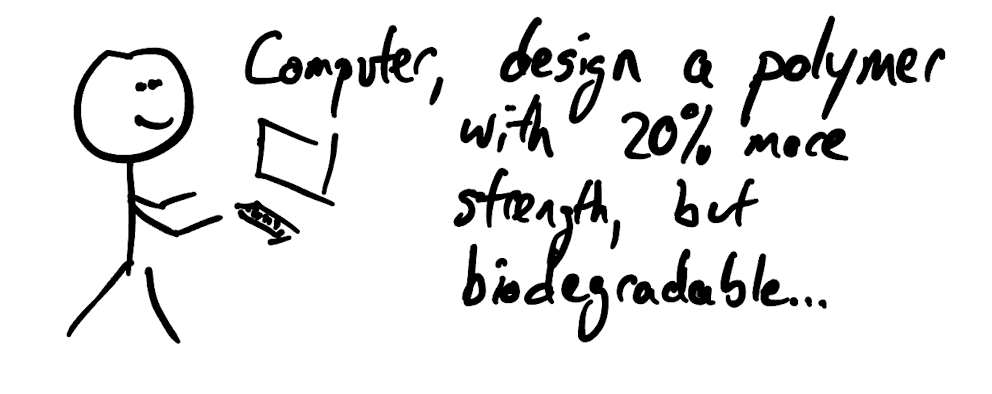 Computer, design a polymer
with 20% more
strength, but
biodegradable...